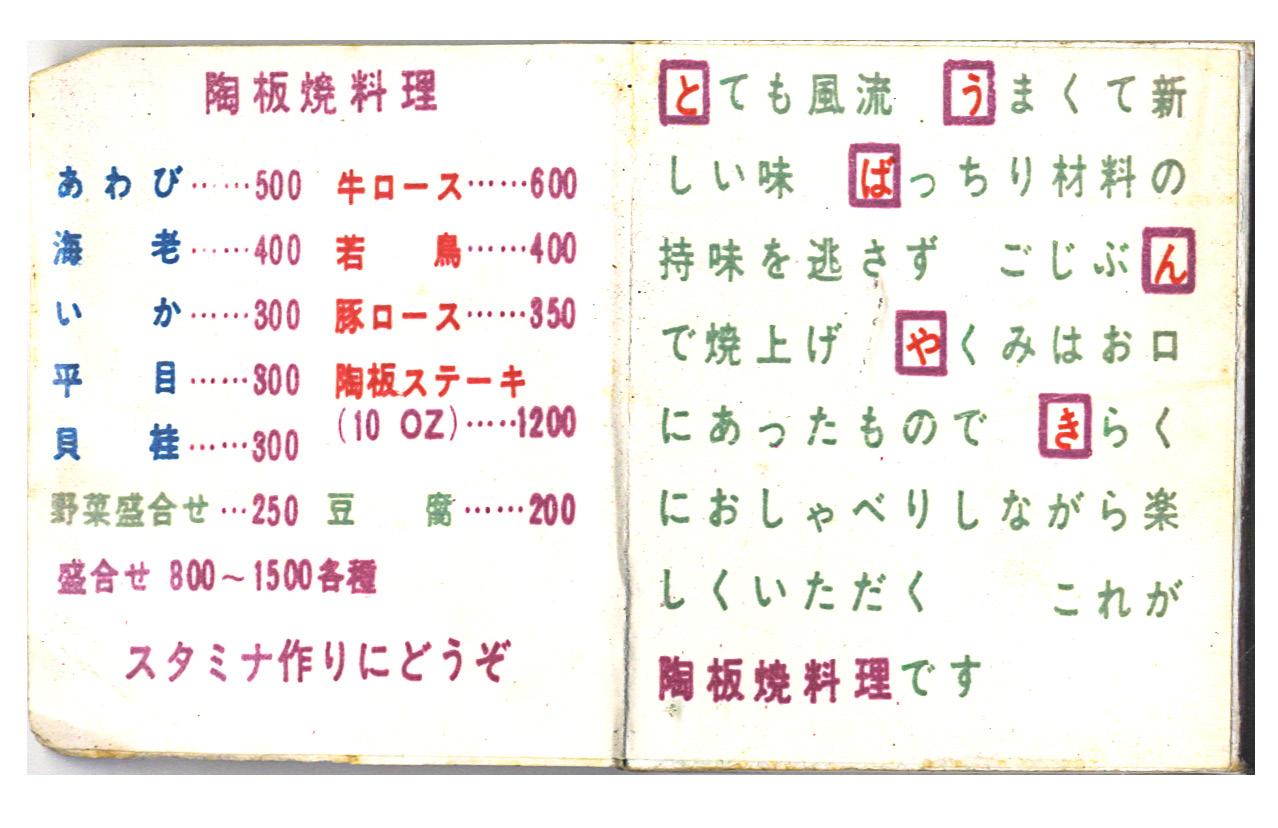 陶板焼料理
あわび……500
海老……400
いか……300
平目……300
貝桂……300
牛ロース……600
若鳥……400
豚ロース……350
陶板ステーキ
(10 OZ)……1200
野菜盛合せ…250
豆腐……200
盛合せ 800～1500各種
スタミナ作りにどうぞ
とても風流 うまくて新
しい味 ばっちり材料の
持味を逃さず ごじぶん
で焼上げ やくみはお口
にあったもので きらく
におしゃべりしながら楽
しくいただく これが
陶板焼料理です